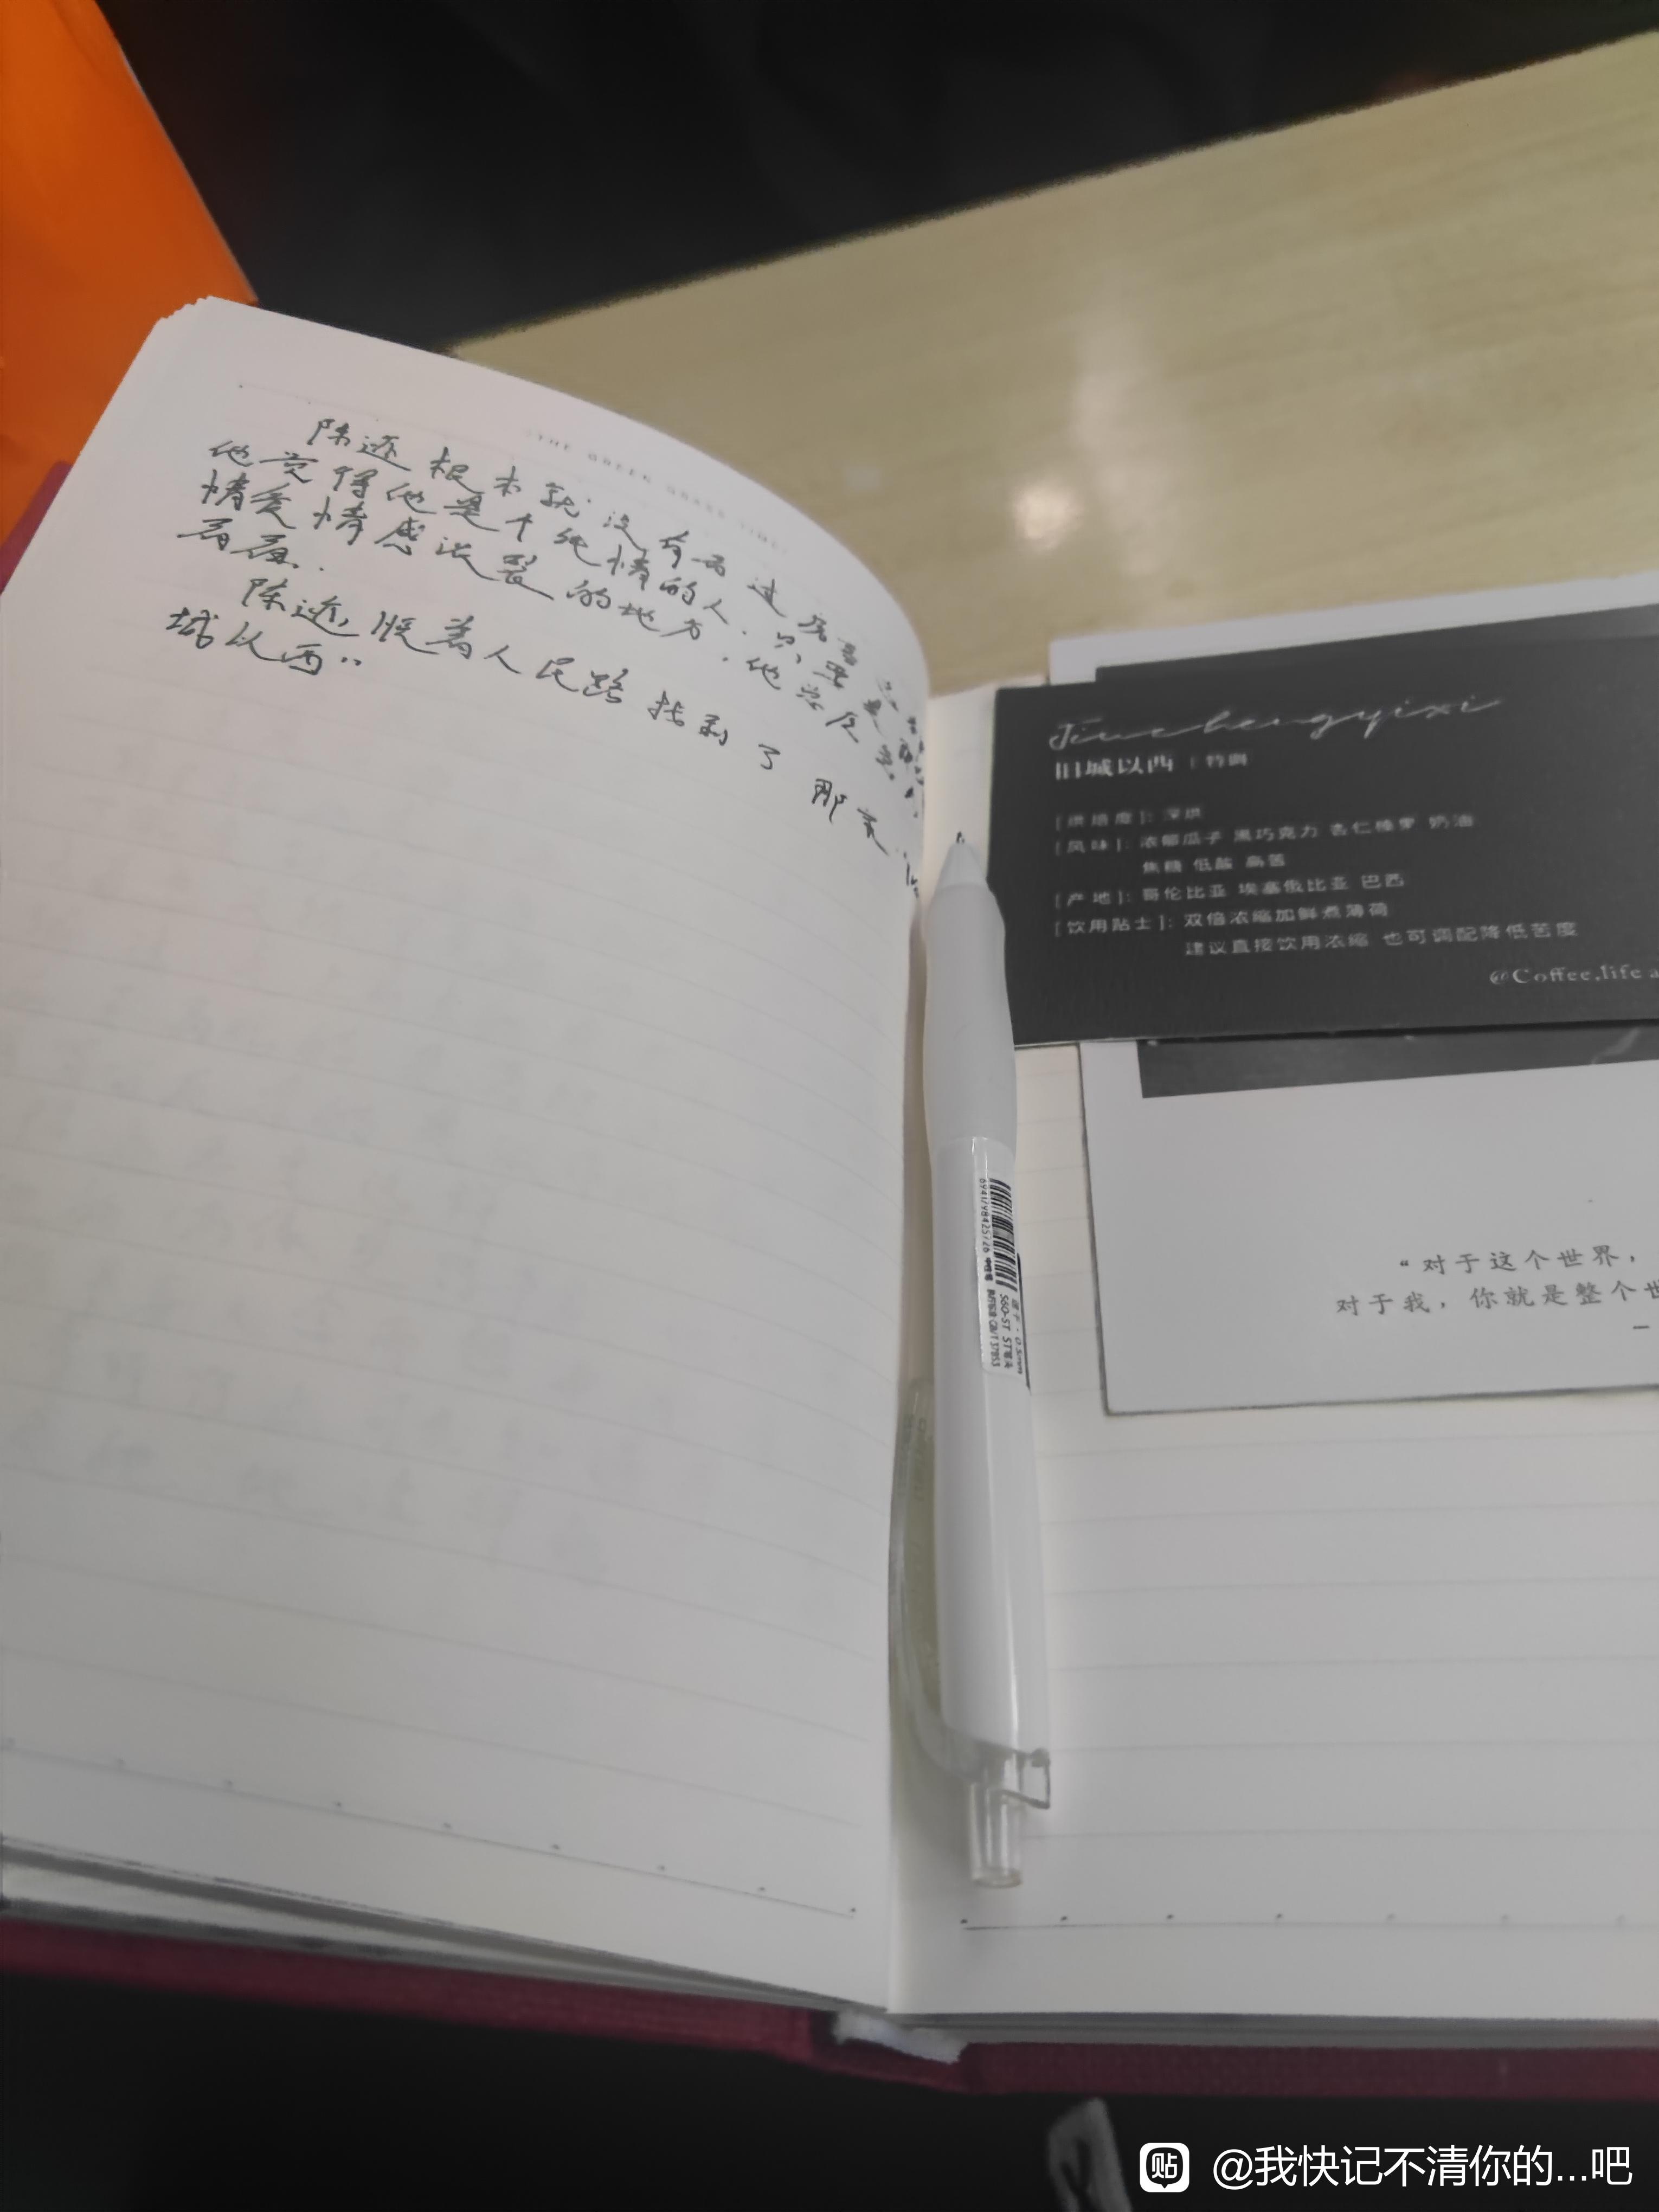 THE GREEN GRASS TIME
陈迹根本就没有去过
他觉得他是个纯情的人.只要是
情爱情感浓裂的地方,他常反
陈迹,顺着人民路找到了那家旧
城以西"
Jiuchengyixi
旧城以西 | 特调
[烘焙度]: 深烘
[风味]: 浓郁瓜子 黑巧克力 杏仁榛果 奶油
焦糖 低酸 高苦
[产地]: 哥伦比亚 埃塞俄比亚 巴西
[饮用贴士]: 双倍浓缩加鲜煮薄荷
建议直接饮用浓缩 也可调配降低苦度
@Coffee.life a
“对于这个世界，
对于我，你就是整个世
6941798425726
0.5mm
S60-ST ST笔头
贴 @我快记不清你的...吧